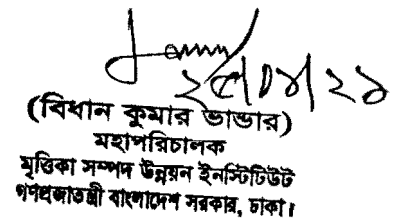 (বিধান কুমার ভান্ডার)
মহাপরিচালক
মৃত্তিকা সম্পদ উন্নয়ন ইনস্টিটিউট
গণপ্রজাতন্ত্রী বাংলাদেশ সরকার, ঢাকা।